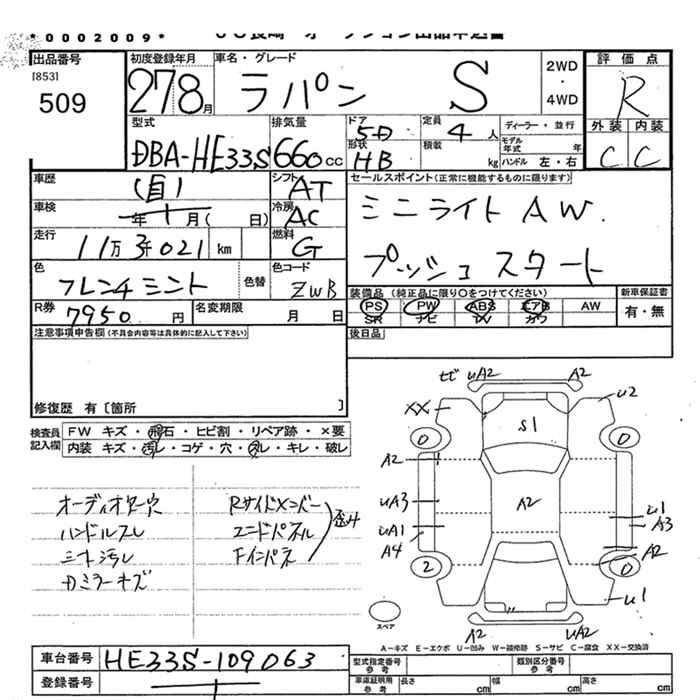 *0002009*
出品番号
[853]
509
初度登録年月
278月
車名・グレード
ラパン S
2WD
・
4WD
評価点
R
外装 内装
C C
型式
DBA-HE33S
排気量
660cc
ドア
5D
形状
HB
定員
4人
積載
kg
ディーラー・並行
モデル年式 年
ハンドル 左・右
車歴
(自)
シフト
AT
車検
年 月( 日)
冷房
AC
走行
11万3千021 km
燃料
G
色
フレンチミント
色替
色コード
ZWB
R券
7950円
名変期限
月 日
セールスポイント(正常に機能するものに限ります)
ミニライトAW.
プッシュスタート
装備品(純正品に限り○をつけてください)
PS PW ABS エアB AW
SR ナビ TV カワ
新車保証書
有・無
後日品
注意事項申告欄(不具合内容等は具体的に記入して下さい)
修復歴 有〔箇所 〕
検査員記入欄
FW キズ・飛石・ヒビ割・リペア跡・×要
内装 キズ・汚レ・コゲ・穴・スレ・キレ・破レ
オーディオ穴
ハンドルスレ
シート汚レ
Dミラーキズ
Rサイドメンバー
エンドパネル
Fインパネ
歪み
トビ UA2 A2
XX U2
S1
0 0
A2
UA3 A2 U1
A3
UA1
A4 A2
2 0
U1
A2 UA2
スペア
A-キズ E-エクボ U-凹み W-補修跡 S-サビ C-腐食 XX-交換済
車台番号
HE33S-109063
登録番号
型式指定番号
参考
類別区分番号
参考
車庫証明用
参考
長さ cm 幅 cm 高さ cm